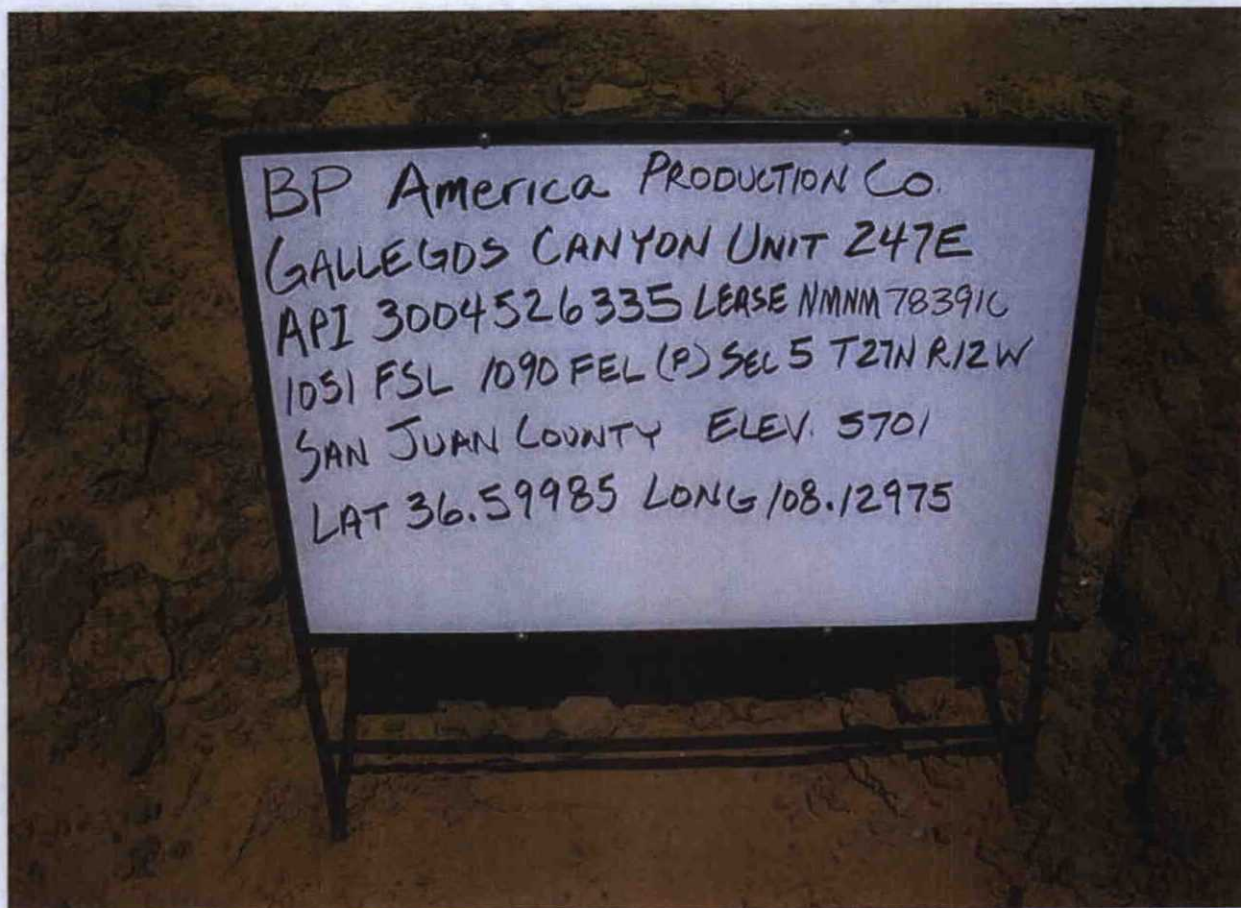 BP America PRODUCTION Co.
GALLEGOS CANYON UNIT 247E
API 3004526335 LEASE NMNM 78391C
1051 FSL 1090 FEL (P) SEC 5 T27N R12W
SAN JUAN COUNTY ELEV. 5701
LAT 36.59985 LONG 108.12975